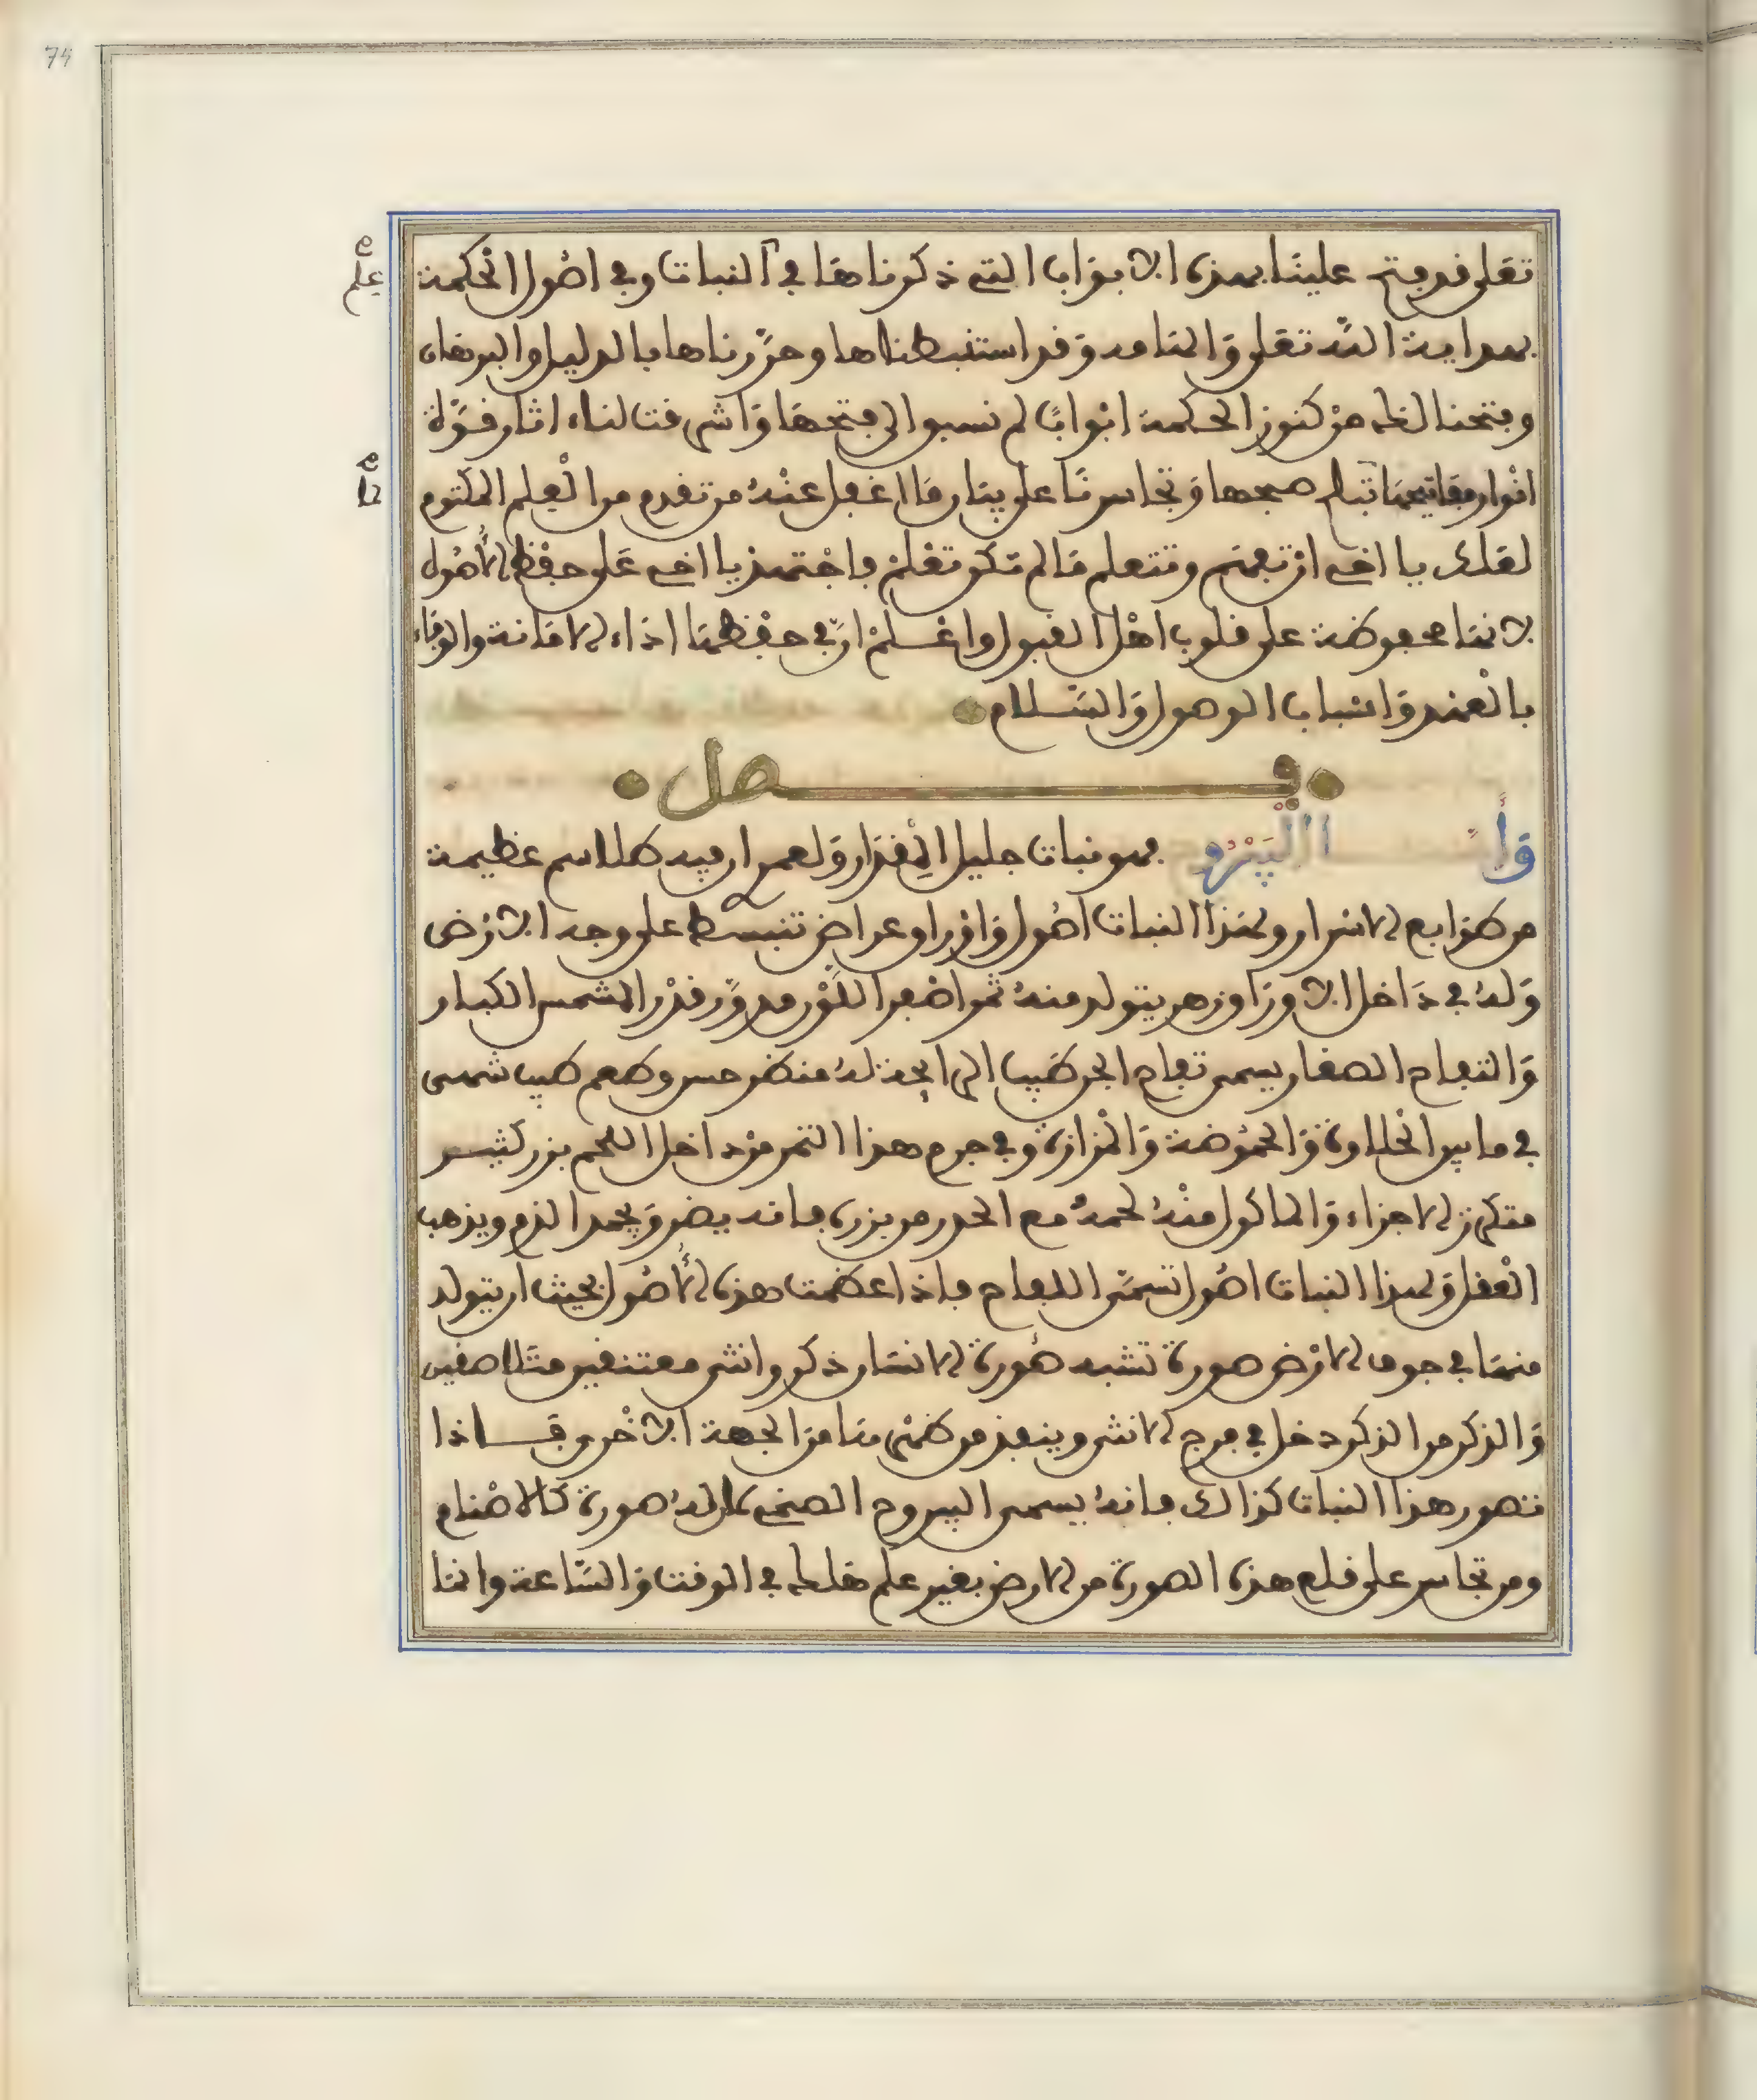 74
تعلى قد فتح علينا بهذه الابواب التي ذكرناها في النبات وفي اصول الحكمة
علم
بهداية الله تعلى والهامه وقد استنبطناها وحررناها بالدليل والبرهان
وفتحنا لغلم من كنوز الحكمة ابوابا لم نسبق الى فتحها واشرقت لنا اثار قوة
انوار مفاتيحها صبحها وتجاسرنا على بيان ما اغفل عنه من تقدم من العلم المكتوم
ما
لعلك يا اخي ان تفهم وتتعلم ما لم تكن تعلم فاجتهد يا اخي على حفظ الأصول
لانها محفوظة على قلوب اهل القبول واعلم ان في حفظها اداء الامانة والوفاء
بالعهد واسباب الوصول والسلام
فصل
وأما اليبروح فهو نبات جليل المقدار ولعمر ان فيه طلاسم عظيمة
من طوابع الاسرار ولهذا النبات اصول واوراق عراض تنبسط على وجه الارض
وله في داخل الاوراق زهر يتولد منه ثمر اصفر اللون مدور قدر المشمس الكبار
والتفاح الصغار يسمى تفاح الجن طيب الرائحة له منظر حسن وطعم طيب شهي
في ما بين الحلاوة والحموضة والمزازة وفي جرم هذا الثمر من داخل اللحم بزر كثير
متكرز الاجزاء والماكول منه لحمه مع الحذر من بزره فانه يضر ويجمد الدم ويذهب
العقل ولهذا النبات اصول تسمى اللفاح فاذا عظمت هذه الأصول بحيث ان يتولد
منها في جوف الارض صورة تشبه صورة الانسان ذكر وانثى معتنقين متلاصقين
والذكر من الذكر دخل في فرج الانثى وينفذ من ظهرها من الجهة الاخرى فاذا
تصور هذا النبات كذالك فانه يسمى اليبروح الصنمي لان له صورة كالاصنام
ومن تجاسر على قلع هذه الصورة من الارض بغير علم هلك في الوقت والساعة وانما